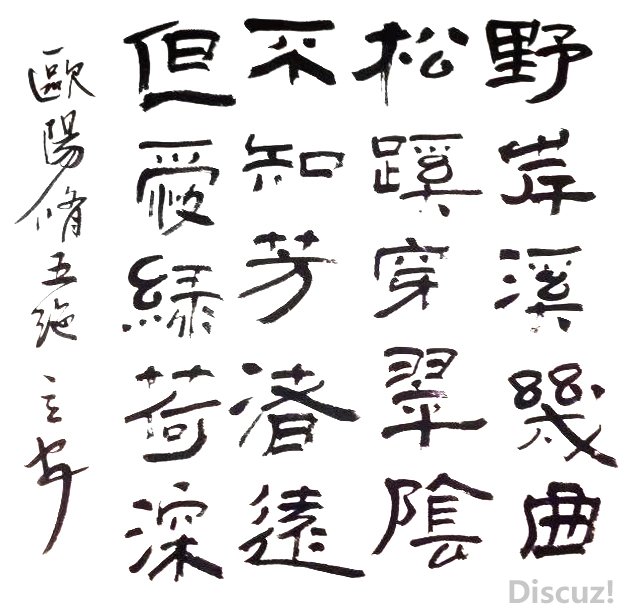 野岸溪幾曲
松蹊穿翠陰
不知芳渚遠
但愛綠荷深
歐陽脩五絕 立安
Discuz!